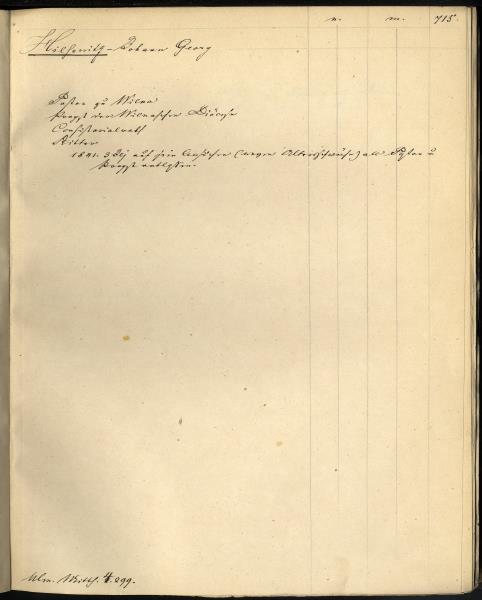 n. m. 715.
Hilsewitz - Johann Georg
Pastor zu Wilna
Propst der Wilnaschen Diöcese
Consistorialrath
Ritter
1841. 3 auf sein Ansuchen (wegen Altersschwäche) als Pastor u
Propst entlassen
Ulm. Mitth. 4. 299.